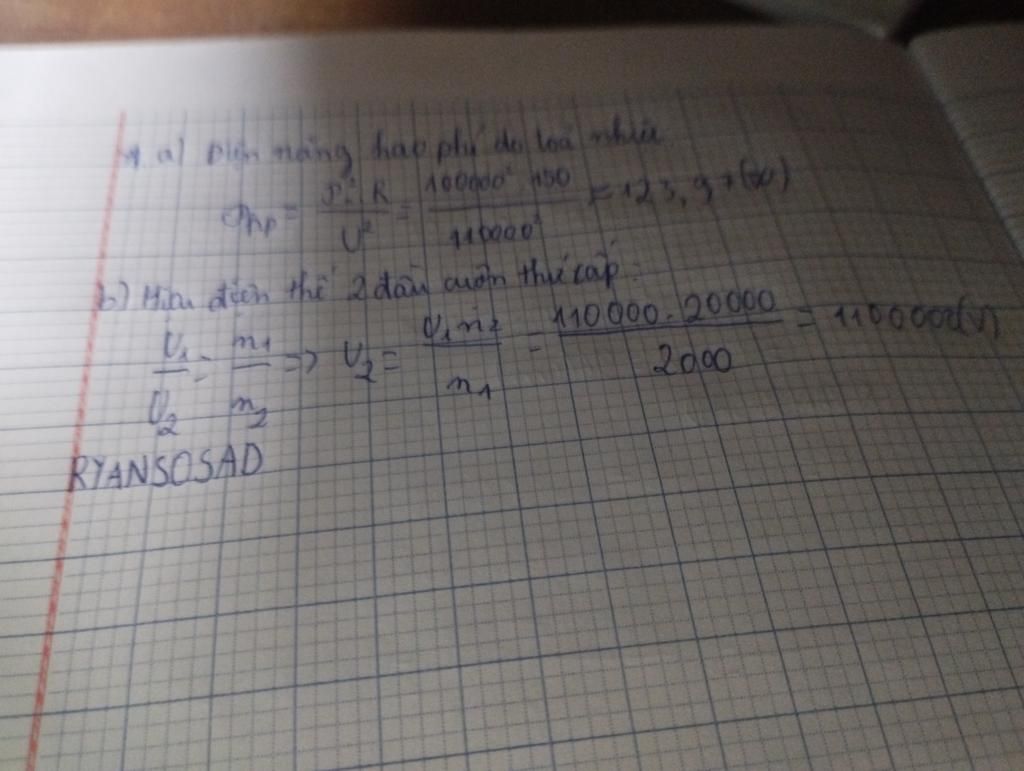 1. a) Điện năng hao phí do toả nhiệt
Php = P².R / U² = 100000² 150 / 110000² = 123,97(W)
b) Hiệu điện thế 2 đầu cuộn thứ cấp:
U1 / U2 = n1 / n2 => U2 = U1.n2 / n1 = 110000.20000 / 2000 = 1100000(V)
RYANSOSAD